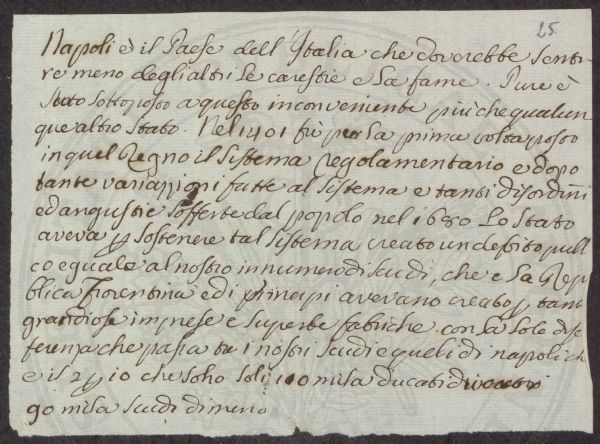 25
Napoli è il Paese dell'Italia che doverebbe senti-
re meno degli altri le carestie e la fame. Pure è
stato sottoposto a questo inconveniente più che qualun-
que altro stato. Nel 1401 fù per la prima volta posto
in quel Regno il sistema regolamentario e dopo
tante variazzioni fatte al sistema e tanti disordini
ed angustie sofferte dal popolo nel 1680 Lo Stato
aveva p sostenere tal sistema creato un debito publi
co eguale al nostro in numero di scudi, che e la Repu
blica Fiorentina ed i principi avevano creato p tante
grandiose imprese e superbe fabriche con la sola dif
ferenza che passa tra i nostri scudi e queli di napoli ch
e il 2 p 10 che sono soli 100 mila ducati
90 mila scudi di meno